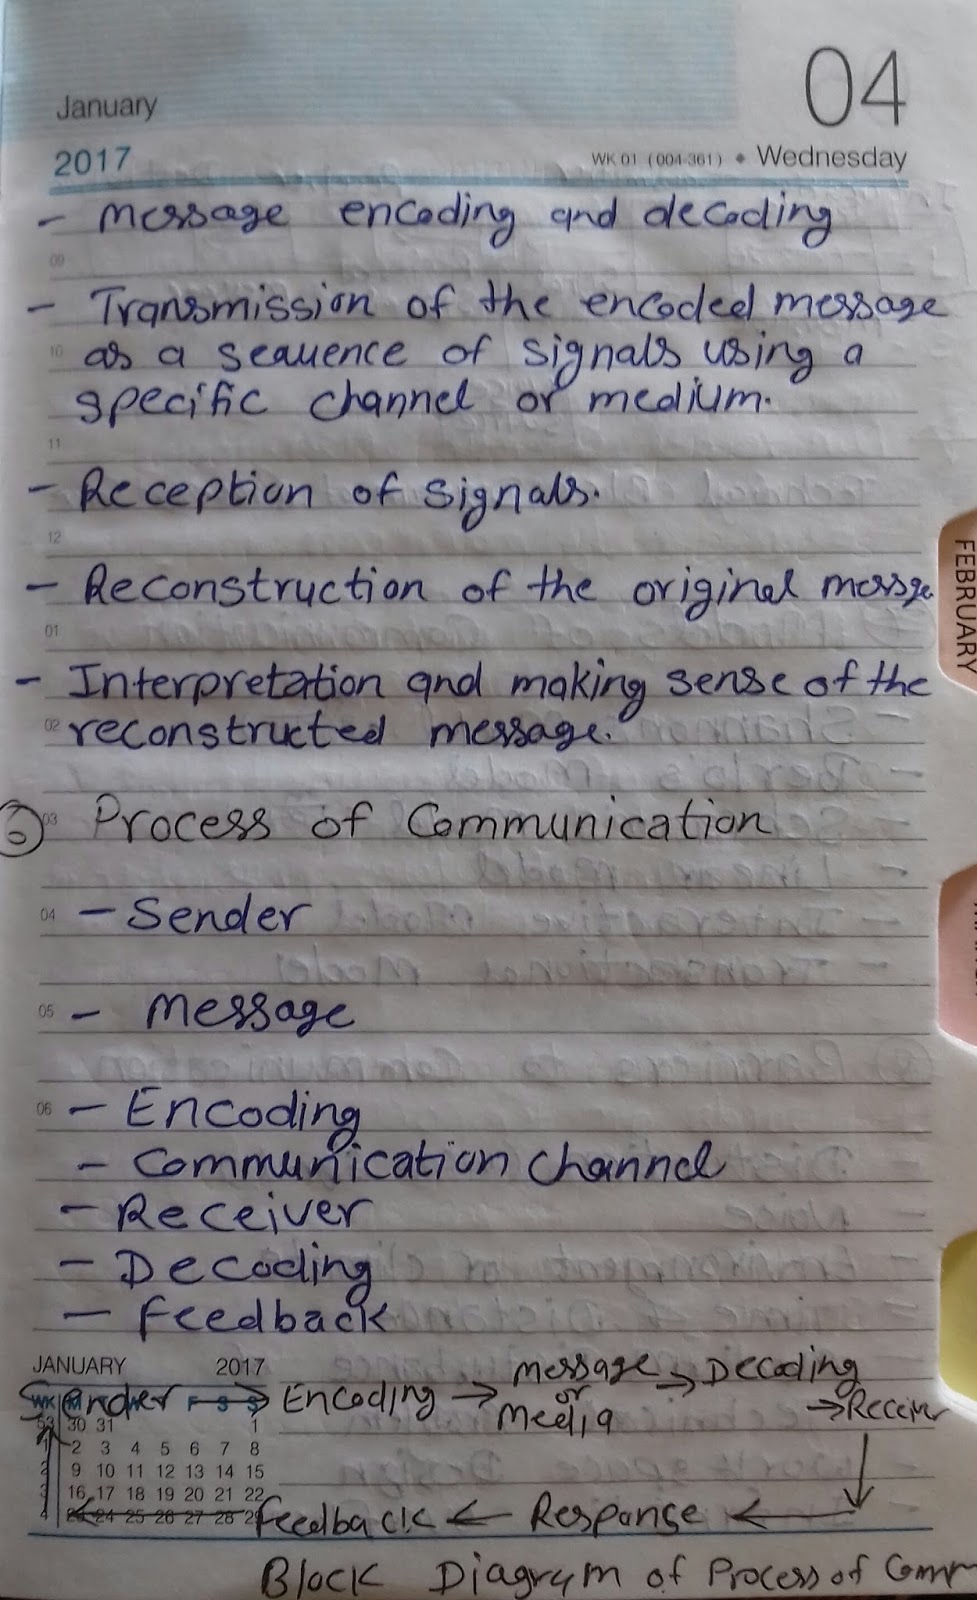 January
04
2017
WK 01 (004-361) • Wednesday
- Message encoding and decoding
09
- Transmission of the encoded message
10 as a seauence of signals using a
specific channel or medium.
11
- Reception of signals.
12
- Reconstruction of the original messge
01
- Interpretation and making sense of the
02 reconstructed message.
6 03 Process of Communication
04 - Sender
05 - Message
06 - Encoding
- Communication channel
- Receiver
- Decoding
- Feedback
FEBRUARY
JANUARY 2017
Sender → Encoding → Message or Media → Decoding
→ Receiver
WK M F S S
53 30 31 1
1 2 3 4 5 6 7 8
2 9 10 11 12 13 14 15
3 16 17 18 19 20 21 22
4 23 24 25 26 27 28 29
Feedback ← Response ←
Block Diagram of Process of Comm